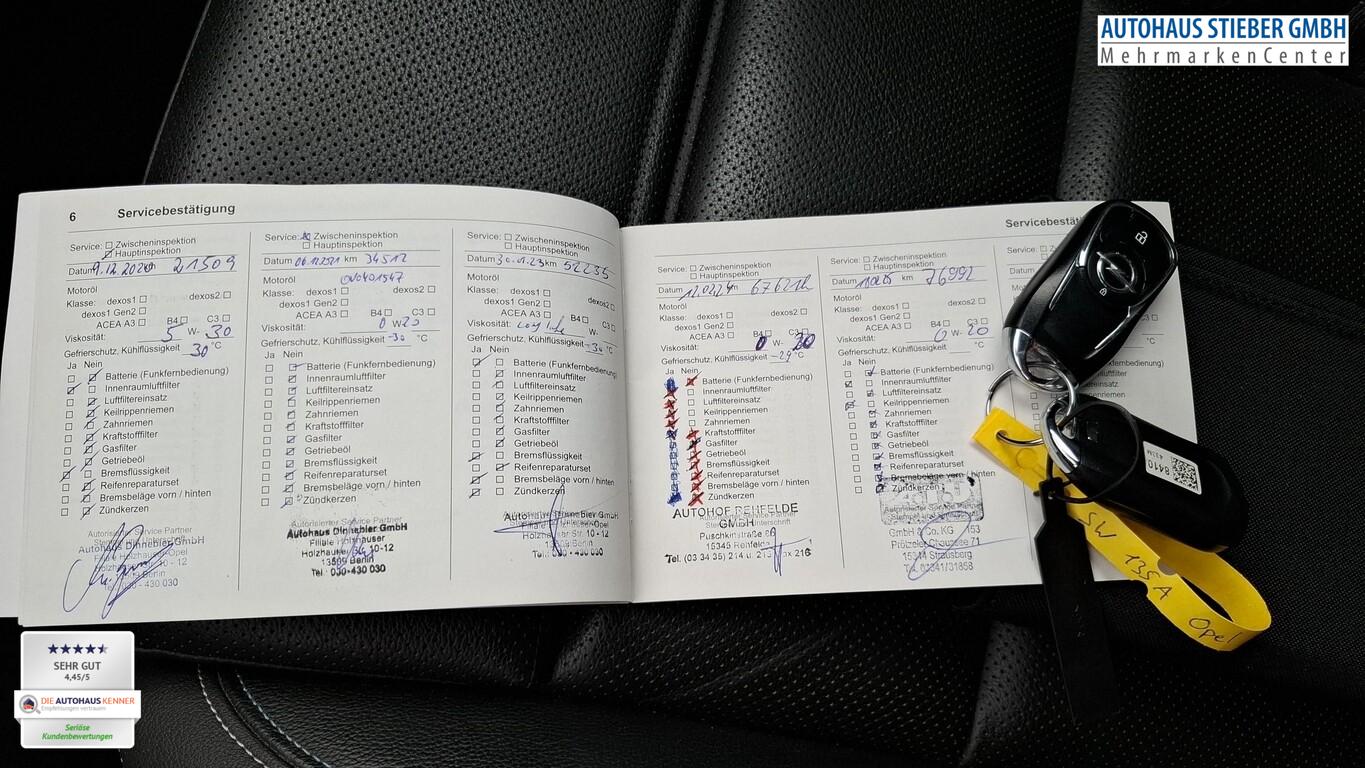 AUTOHAUS STIEBER GMBH
MehrmarkenCenter
6 Servicebestätigung
Service: Zwischeninspektion
Hauptinspektion
Datum 9.12.2020 km 21509
Motoröl
Klasse: dexos1 dexos2
dexos1 Gen2
ACEA A3 B4 C3
Viskosität: 5 W- 30
Gefrierschutz, Kühlflüssigkeit 30 °C
Ja Nein
Batterie (Funkfernbedienung)
Innenraumluftfilter
Luftfiltereinsatz
Keilrippenriemen
Zahnriemen
Kraftstofffilter
Gasfilter
Getriebeöl
Bremsflüssigkeit
Reifenreparaturset
Bremsbeläge vorn / hinten
Zündkerzen
Autorisierter Service Partner
Autohaus Dinnebier GmbH
Service: Zwischeninspektion
Hauptinspektion
Datum 06.12.2021 km 34512
Motoröl OV0401547
Klasse: dexos1 dexos2
dexos1 Gen2
ACEA A3 B4 C3
Viskosität: 0 W 20
Gefrierschutz, Kühlflüssigkeit -30 °C
Ja Nein
Batterie (Funkfernbedienung)
Innenraumluftfilter
Luftfiltereinsatz
Keilrippenriemen
Zahnriemen
Kraftstofffilter
Gasfilter
Getriebeöl
Bremsflüssigkeit
Reifenreparaturset
Bremsbeläge vorn / hinten
Zündkerzen
Autorisierter Service Partner
Autohaus Dinnebier GmbH
Filiale Holzhauser
Holzhauser 10-12
13509 Berlin
Tel. 030-430 030
Service: Zwischeninspektion
Hauptinspektion
Datum 30.01.23 km 52235
Motoröl
Klasse: dexos1 dexos2
dexos1 Gen2
ACEA A3 B4 C3
Viskosität: W-
Gefrierschutz, Kühlflüssigkeit -30 °C
Ja Nein
Batterie (Funkfernbedienung)
Innenraumluftfilter
Luftfiltereinsatz
Keilrippenriemen
Zahnriemen
Kraftstofffilter
Gasfilter
Getriebeöl
Bremsflüssigkeit
Reifenreparaturset
Bremsbeläge vorn / hinten
Zündkerzen
Autohaus Dinnebier GmbH
Tel. 030 - 430 030
Service: Zwischeninspektion
Hauptinspektion
Datum km
Motoröl
Klasse: dexos1 dexos2
dexos1 Gen2
ACEA A3 B4 C3
Viskosität: 0 W-
Gefrierschutz, Kühlflüssigkeit -29 °C
Ja Nein
Batterie (Funkfernbedienung)
Innenraumluftfilter
Luftfiltereinsatz
Keilrippenriemen
Zahnriemen
Kraftstofffilter
Gasfilter
Getriebeöl
Bremsflüssigkeit
Reifenreparaturset
Bremsbeläge vorn / hinten
Zündkerzen
AUTOHOF REHFELDE
GMBH
Puschkinstraße
15345 Rehfelde
Tel. (03 34 35) 214 u. 215 Fax 216
Service: Zwischeninspektion
Hauptinspektion
Datum km 76992
Motoröl
Klasse: dexos1 dexos2
dexos1 Gen2
ACEA A3 B4 C3
Viskosität: 0 W- 20
Gefrierschutz, Kühlflüssigkeit °C
Ja Nein
Batterie (Funkfernbedienung)
Innenraumluftfilter
Luftfiltereinsatz
Keilrippenriemen
Zahnriemen
Kraftstofffilter
Gasfilter
Getriebeöl
Bremsflüssigkeit
Reifenreparaturset
Bremsbeläge vorn / hinten
Zündkerzen
Autorisierter Service Partner
GmbH & Co. KG 153
Prötzeler Chaussee 71
15344 Strausberg
Tel. 03341/31858
8410
SW 135A
Opel
SEHR GUT
4,45/5
DIE AUTOHAUSKENNER
Empfehlungen vertrauen
Seriöse
Kundenbewertungen